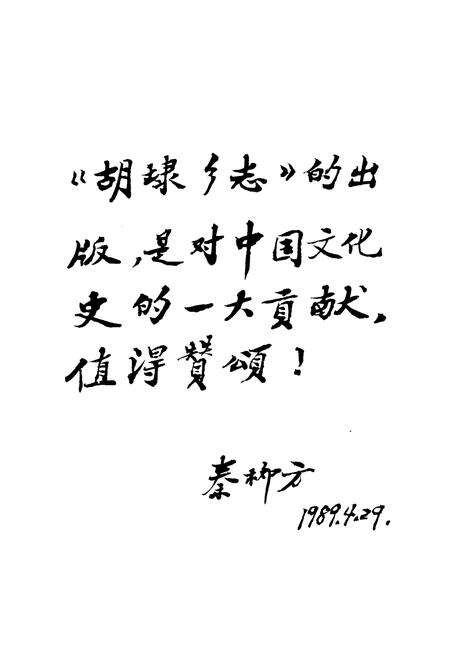 《胡埭乡志》的出
版,是对中国文化
史的一大貢献,
值得贊頌!
秦柳方
1989.4.29.